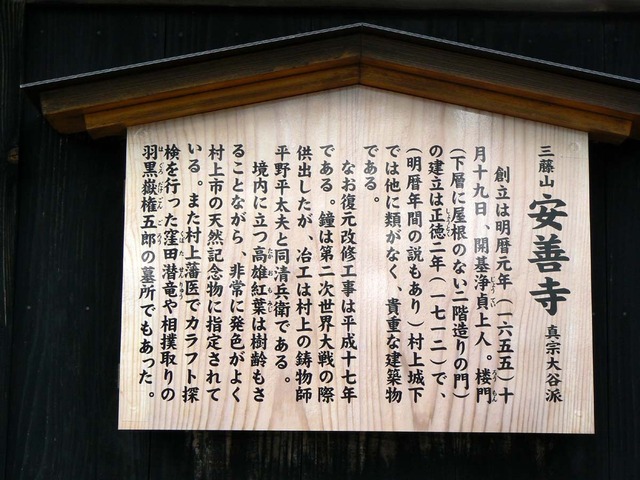 三藤山 安善寺 真宗大谷派
創立は明暦元年（一六五五）十
月十九日、開基浄貞上人。楼門
（下層に屋根のない二階造りの門）
の建立は正徳二年（一七一二）で、
（明暦年間の説もあり）村上城下
では他に類がなく、貴重な建築物
である。
なお復元改修工事は平成十七年
である。鐘は第二次世界大戦の際
供出したが、冶工は村上の鋳物師
平野平太夫と同清兵衛である。
境内に立つ高雄紅葉は樹齢もさ
ることながら、非常に発色がよく
村上市の天然記念物に指定されて
いる。また村上藩医でカラフト探
検を行った窪田潜竜や相撲取りの
羽黒嶽権五郎の墓所でもあった。